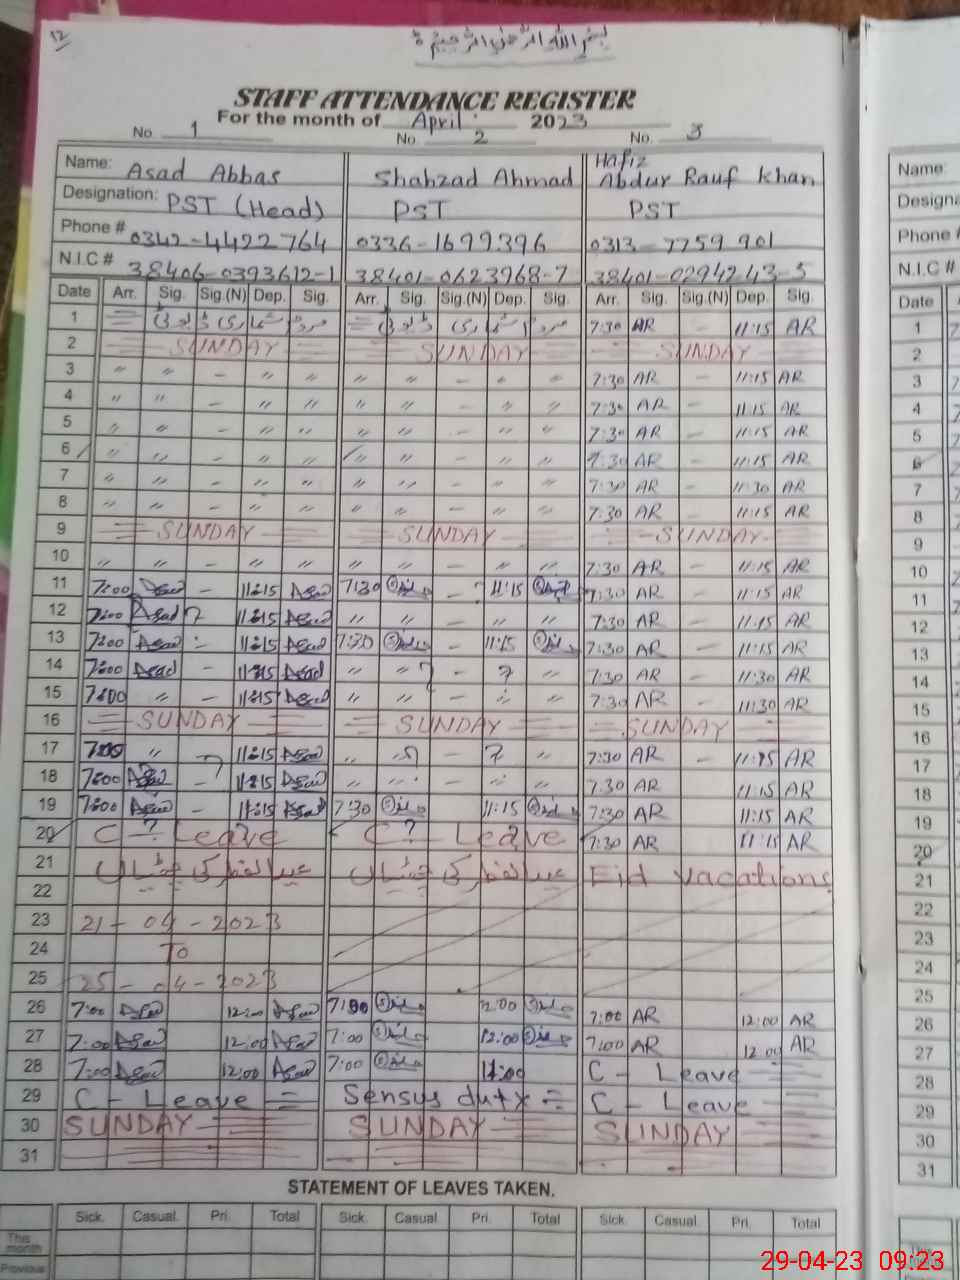 12
بسم اللہ الرحمن الرحیم
STAFF ATTENDANCE REGISTER
For the month of April 2023
No 1 No 2 No. 3
Name: Asad Abbas Shahzad Ahmad Hafiz Abdur Rauf Khan Name:
Designation: PST (Head) PST PST Designa
Phone # 0342-4422764 0336-1699396 0313-7759901 Phone #
N.I.C # 38406-0393612-1 38401-0623968-7 38401-0294243-5 N.I.C #
Date Arr. Sig. Sig.(N) Dep. Sig. Arr. Sig. Sig.(N) Dep. Sig. Arr. Sig. Sig.(N) Dep. Sig. Date
1 مردم شماری ڈیوٹی مردم شماری ڈیوٹی 7:30 AR - 11:15 AR 1
2 SUNDAY SUNDAY SUNDAY 2
3 " " - " " " " - " " 7:30 AR - 11:15 AR 3
4 " " - " " " " - " " 7:30 AR - 11:15 AR 4
5 " " - " " " " - " " 7:30 AR - 11:15 AR 5
6 " " - " " " " - " " 7:30 AR - 11:15 AR 6
7 " " - " " " " - " " 7:30 AR - 11:30 AR 7
8 " " - " " " " - " " 7:30 AR - 11:15 AR 8
9 SUNDAY SUNDAY SUNDAY 9
10 " " - " " " " - " " 7:30 AR - 11:15 AR 10
11 7:00 Asad - 11:15 Asad 7:30 - 11:15 7:30 AR - 11:15 AR 11
12 7:00 Asad 11:15 Asad " " - " " 7:30 AR - 11:15 AR 12
13 7:00 Asad 11:15 Asad 7:30 - 11:15 7:30 AR - 11:15 AR 13
14 7:00 Asad - 11:15 Asad " " - " 7:30 AR - 11:30 AR 14
15 7:00 " - 11:15 Asad " " - " " 7:30 AR - 11:30 AR 15
16 SUNDAY SUNDAY SUNDAY 16
17 7:00 " 11:15 Asad " " - " 7:30 AR - 11:15 AR 17
18 7:00 Asad - 11:15 Asad " " - " " 7:30 AR 11:15 AR 18
19 7:00 Asad - 11:15 Asad 7:30 - 11:15 7:30 AR 11:15 AR 19
20 C - Leave C - Leave 7:30 AR 11:15 AR 20
21 عیدالفطر کی چھٹیاں عیدالفطر کی چھٹیاں Eid vacations 21
22 22
23 21-04-2023 23
24 To 24
25 25-04-2023 25
26 7:00 Asad 12:00 Asad 7:00 12:00 7:00 AR 12:00 AR 26
27 7:00 Asad 12:00 Asad 7:00 12:00 7:00 AR 12:00 AR 27
28 7:00 Asad 12:00 Asad 7:00 C - Leave 28
29 C - Leave Sensus duty C - Leave 29
30 SUNDAY SUNDAY SUNDAY 30
31 31
STATEMENT OF LEAVES TAKEN.
Sick. Casual. Pri. Total Sick. Casual Pri. Total Sick. Casual Pri. Total
This month This
Previous
29-04-23 09:23